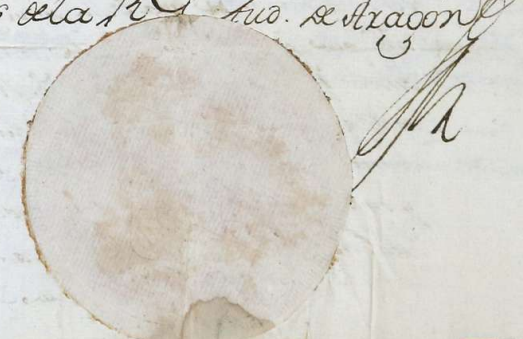 de la Rl Aud. de Aragon